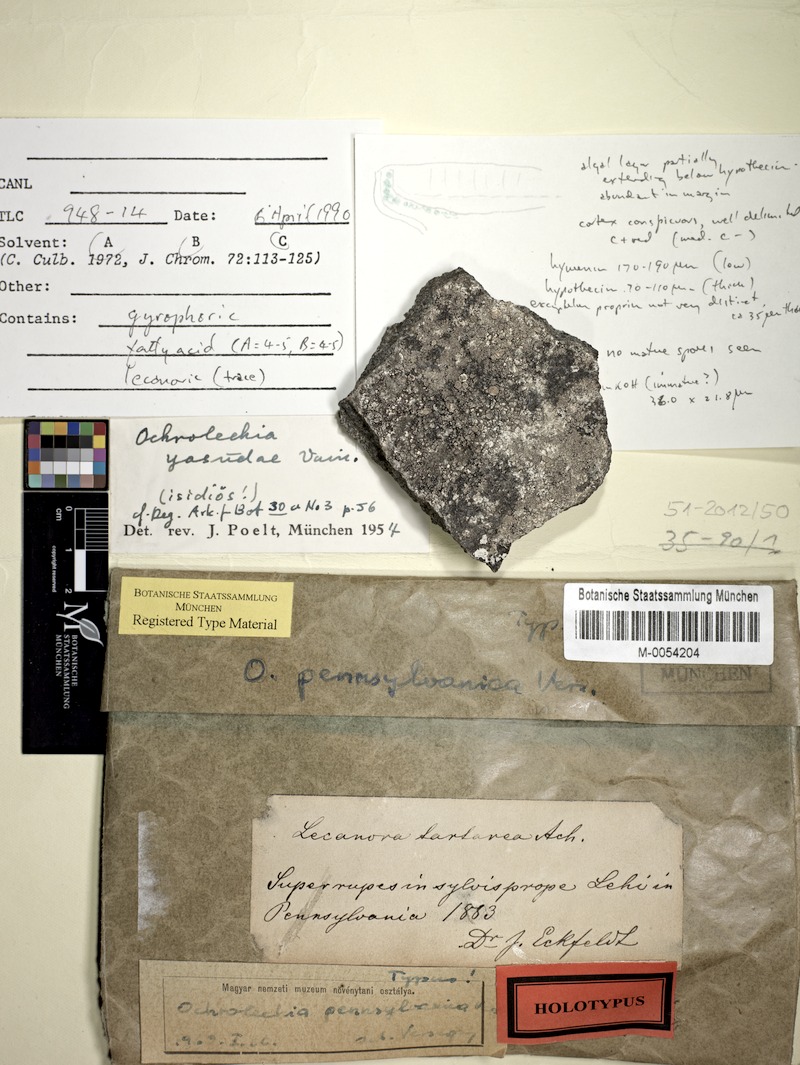 CANL
TLC 948-14 Date: 6 April 1990
Solvent: A B C
(C. Culb. 1972, J. Chrom. 72:113-125)
Other:
Contains: gyrophoric
fatty acid (A=4-5, B=4-5)
lecanoric (trace)
algal layer partially
extending below hypothecium.
abundant in margin
cortex conspicuous, well delimited
C+red (med. C-)
hymenium 170-190 µm (low)
hypothecium 70-110 µm (thick)
excipulum proprium not very distinct
ca 35 µm
no mature spores seen
KOH (immature?)
x 21.8 µm
Ochrolechia
yasudae Vain.
(isidiös!)
Ark. f Bot 30 a No 3 p. 56
Det. rev. J. Poelt, München 1954
51-2012/50
35-90/1
0
1
2
cm
copyright reserved
BOTANISCHE
STAATSSAMMLUNG
MÜNCHEN
BOTANISCHE STAATSSAMMLUNG
MÜNCHEN
Registered Type Material
Botanische Staatssammlung München
M-0054204
Typ
MÜNCHEN
O. pennsylvanica Vers.
Lecanora tartarea Ach.
Super rupes in sylvis prope Lehi in
Pennsylvania 1883
Dr J. Eckfeldt
Typus!
Magyar nemzeti muzeum növénytani osztálya.
Ochrolechia pennsylvanica
HOLOTYPUS